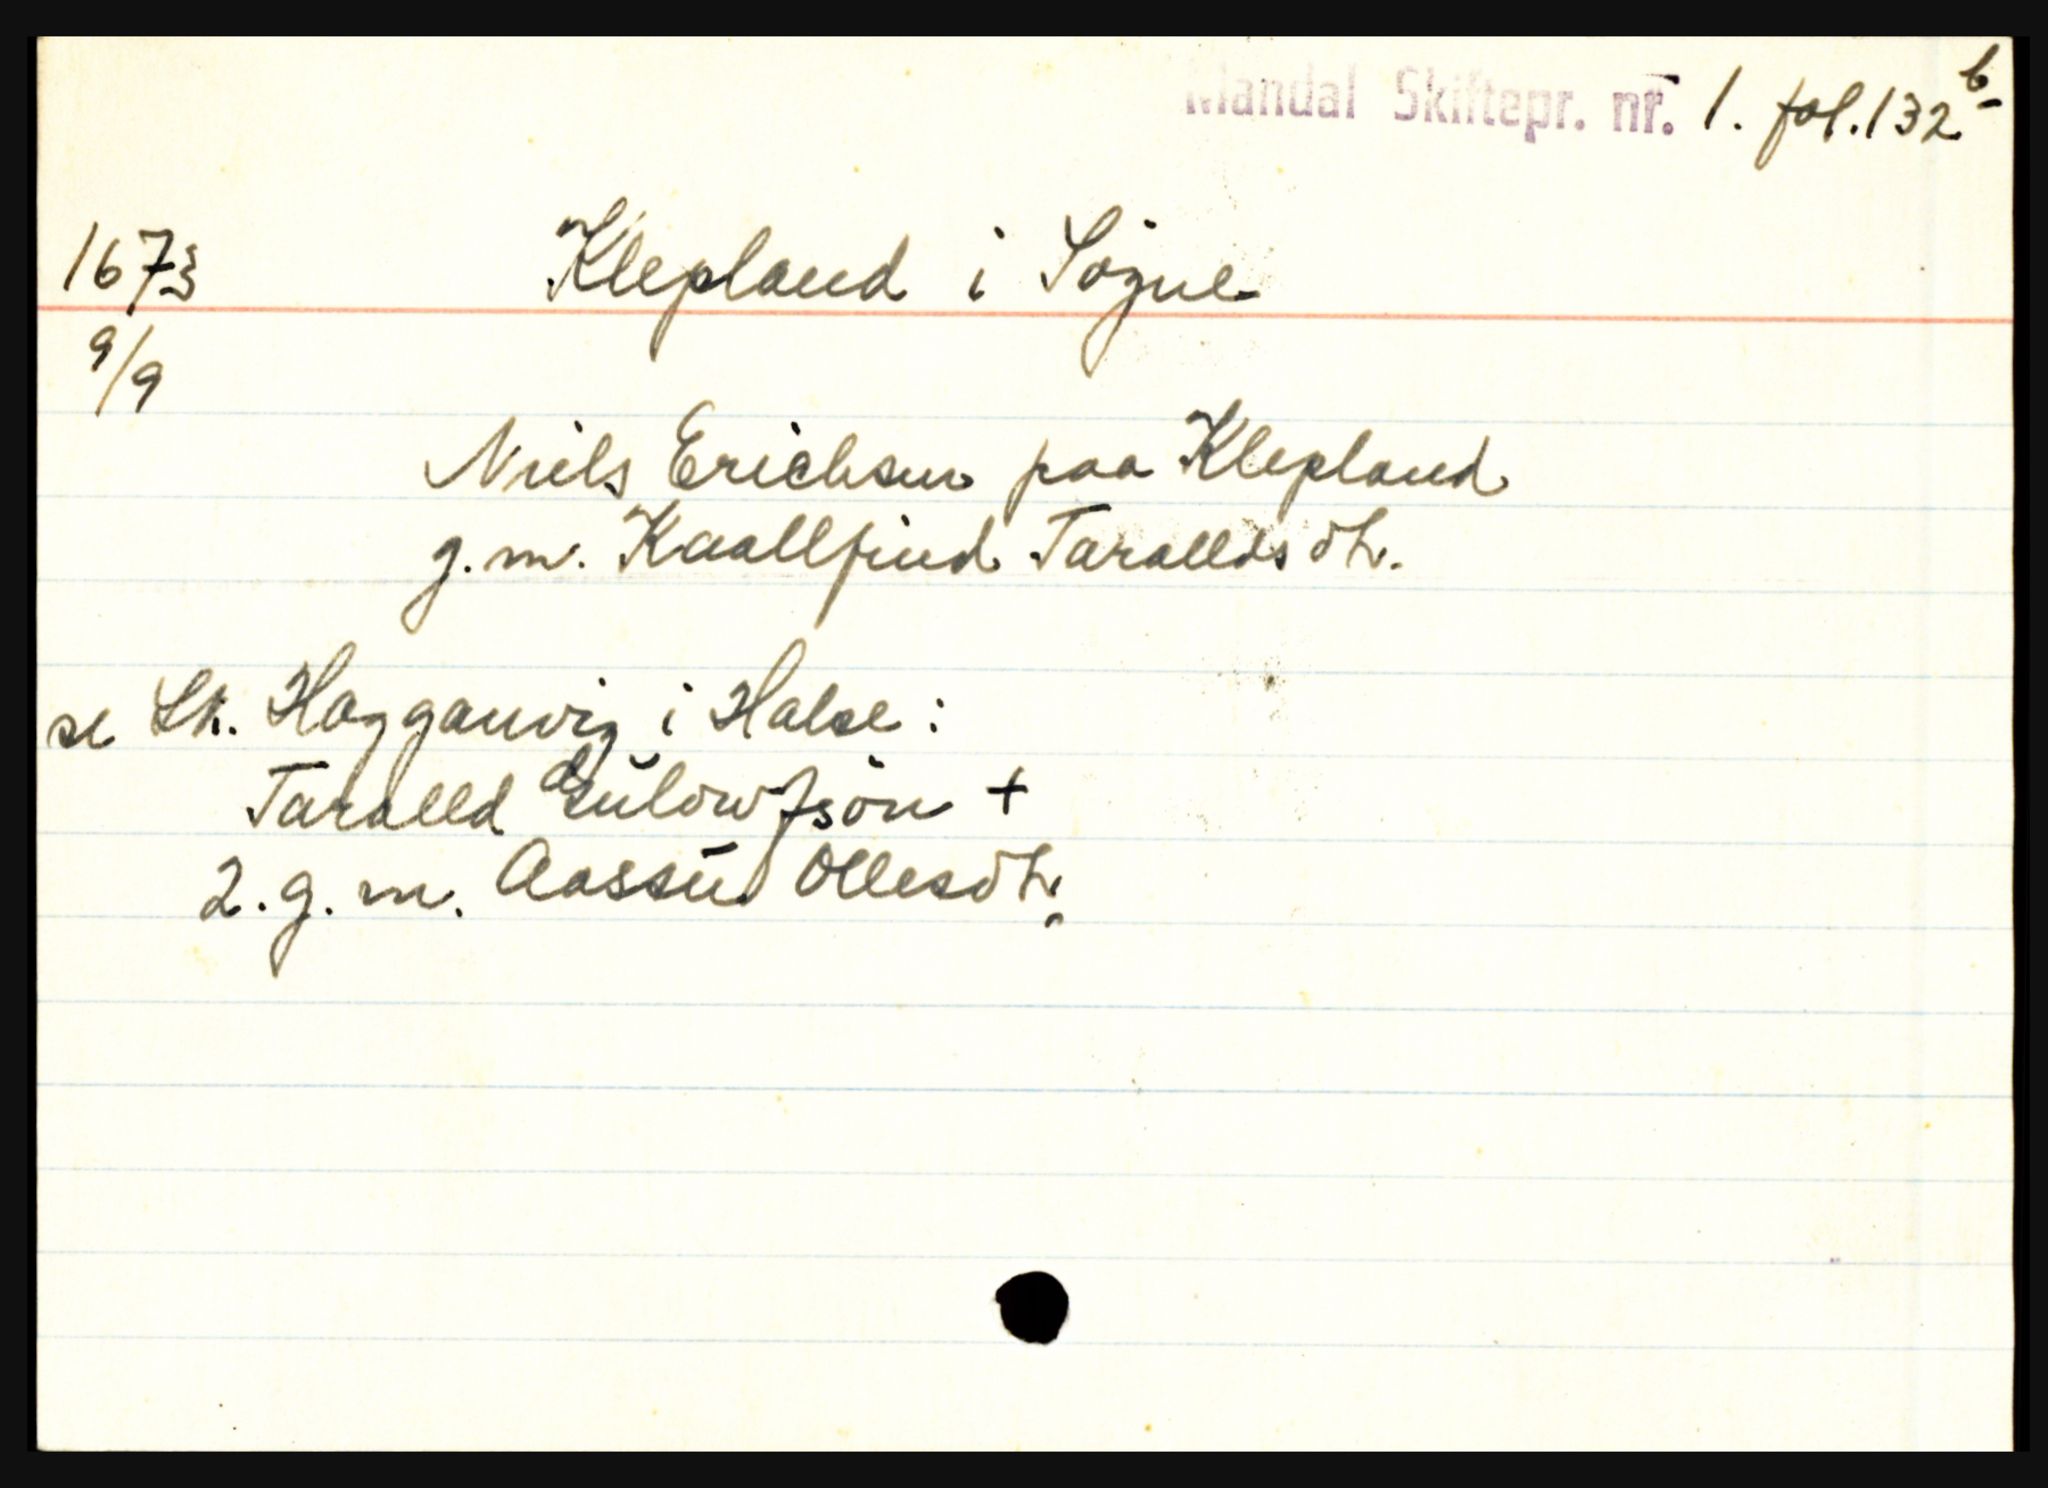 Mandal Skiftepr. nr. 1. fol. 132 b
1673 Klepland i Søgne
9/9
Niels Erichsen paa Klepland
g. m. Kaallfind Taralldsdtr.
se Sk. Hogganvig i Halse:
Taralld Gulowfsøn +
2. g. m. Aassu Ollesdtr.